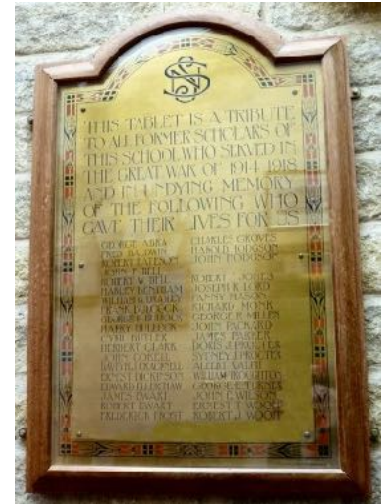 THIS TABLET IS A TRIBUTE
TO ALL FORMER SCHOLARS OF
THIS SCHOOL WHO SERVED IN
THE GREAT WAR OF 1914-1918
AND IN UNDYING MEMORY
OF THE FOLLOWING WHO
GAVE THEIR LIVES FOR US
GEORGE ABRA
FRED BALDWIN
ROBERT BATESON
JOHN T BELL
ROBERT W BELL
HARLEY BENTHAM
WILLIAM G
FRANK
GEORGE C BULLOCK
HARRY BULLOCK
CYRIL BUTLER
HERBERT CLARK
JOHN
DAVID
ERNEST DICKENSON
EDWARD
JAMES EWART
ROBERT EWART
FREDERICK FROST
CHARLES GROVES
HAROLD HODGSON
JOHN HODGSON
ROBERT JONES
JOSEPH R LORD
FANNY MASON
RICHARD MONK
GEORGE R MILLEN
JOHN PACKARD
JAMES PARKER
DORIS
SYDNEY J PROCTER
ALBERT
WILLIAM TROUGHTON
GEORGE E TURNER
JOHN E WILSON
ERNEST T WOOF
ROBERT J WOOFF